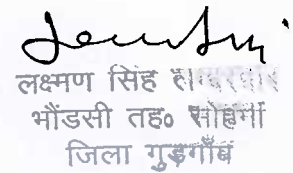 लक्ष्मण सिंह
भौंडसी तह० सोहना
जिला गुड़गाँव